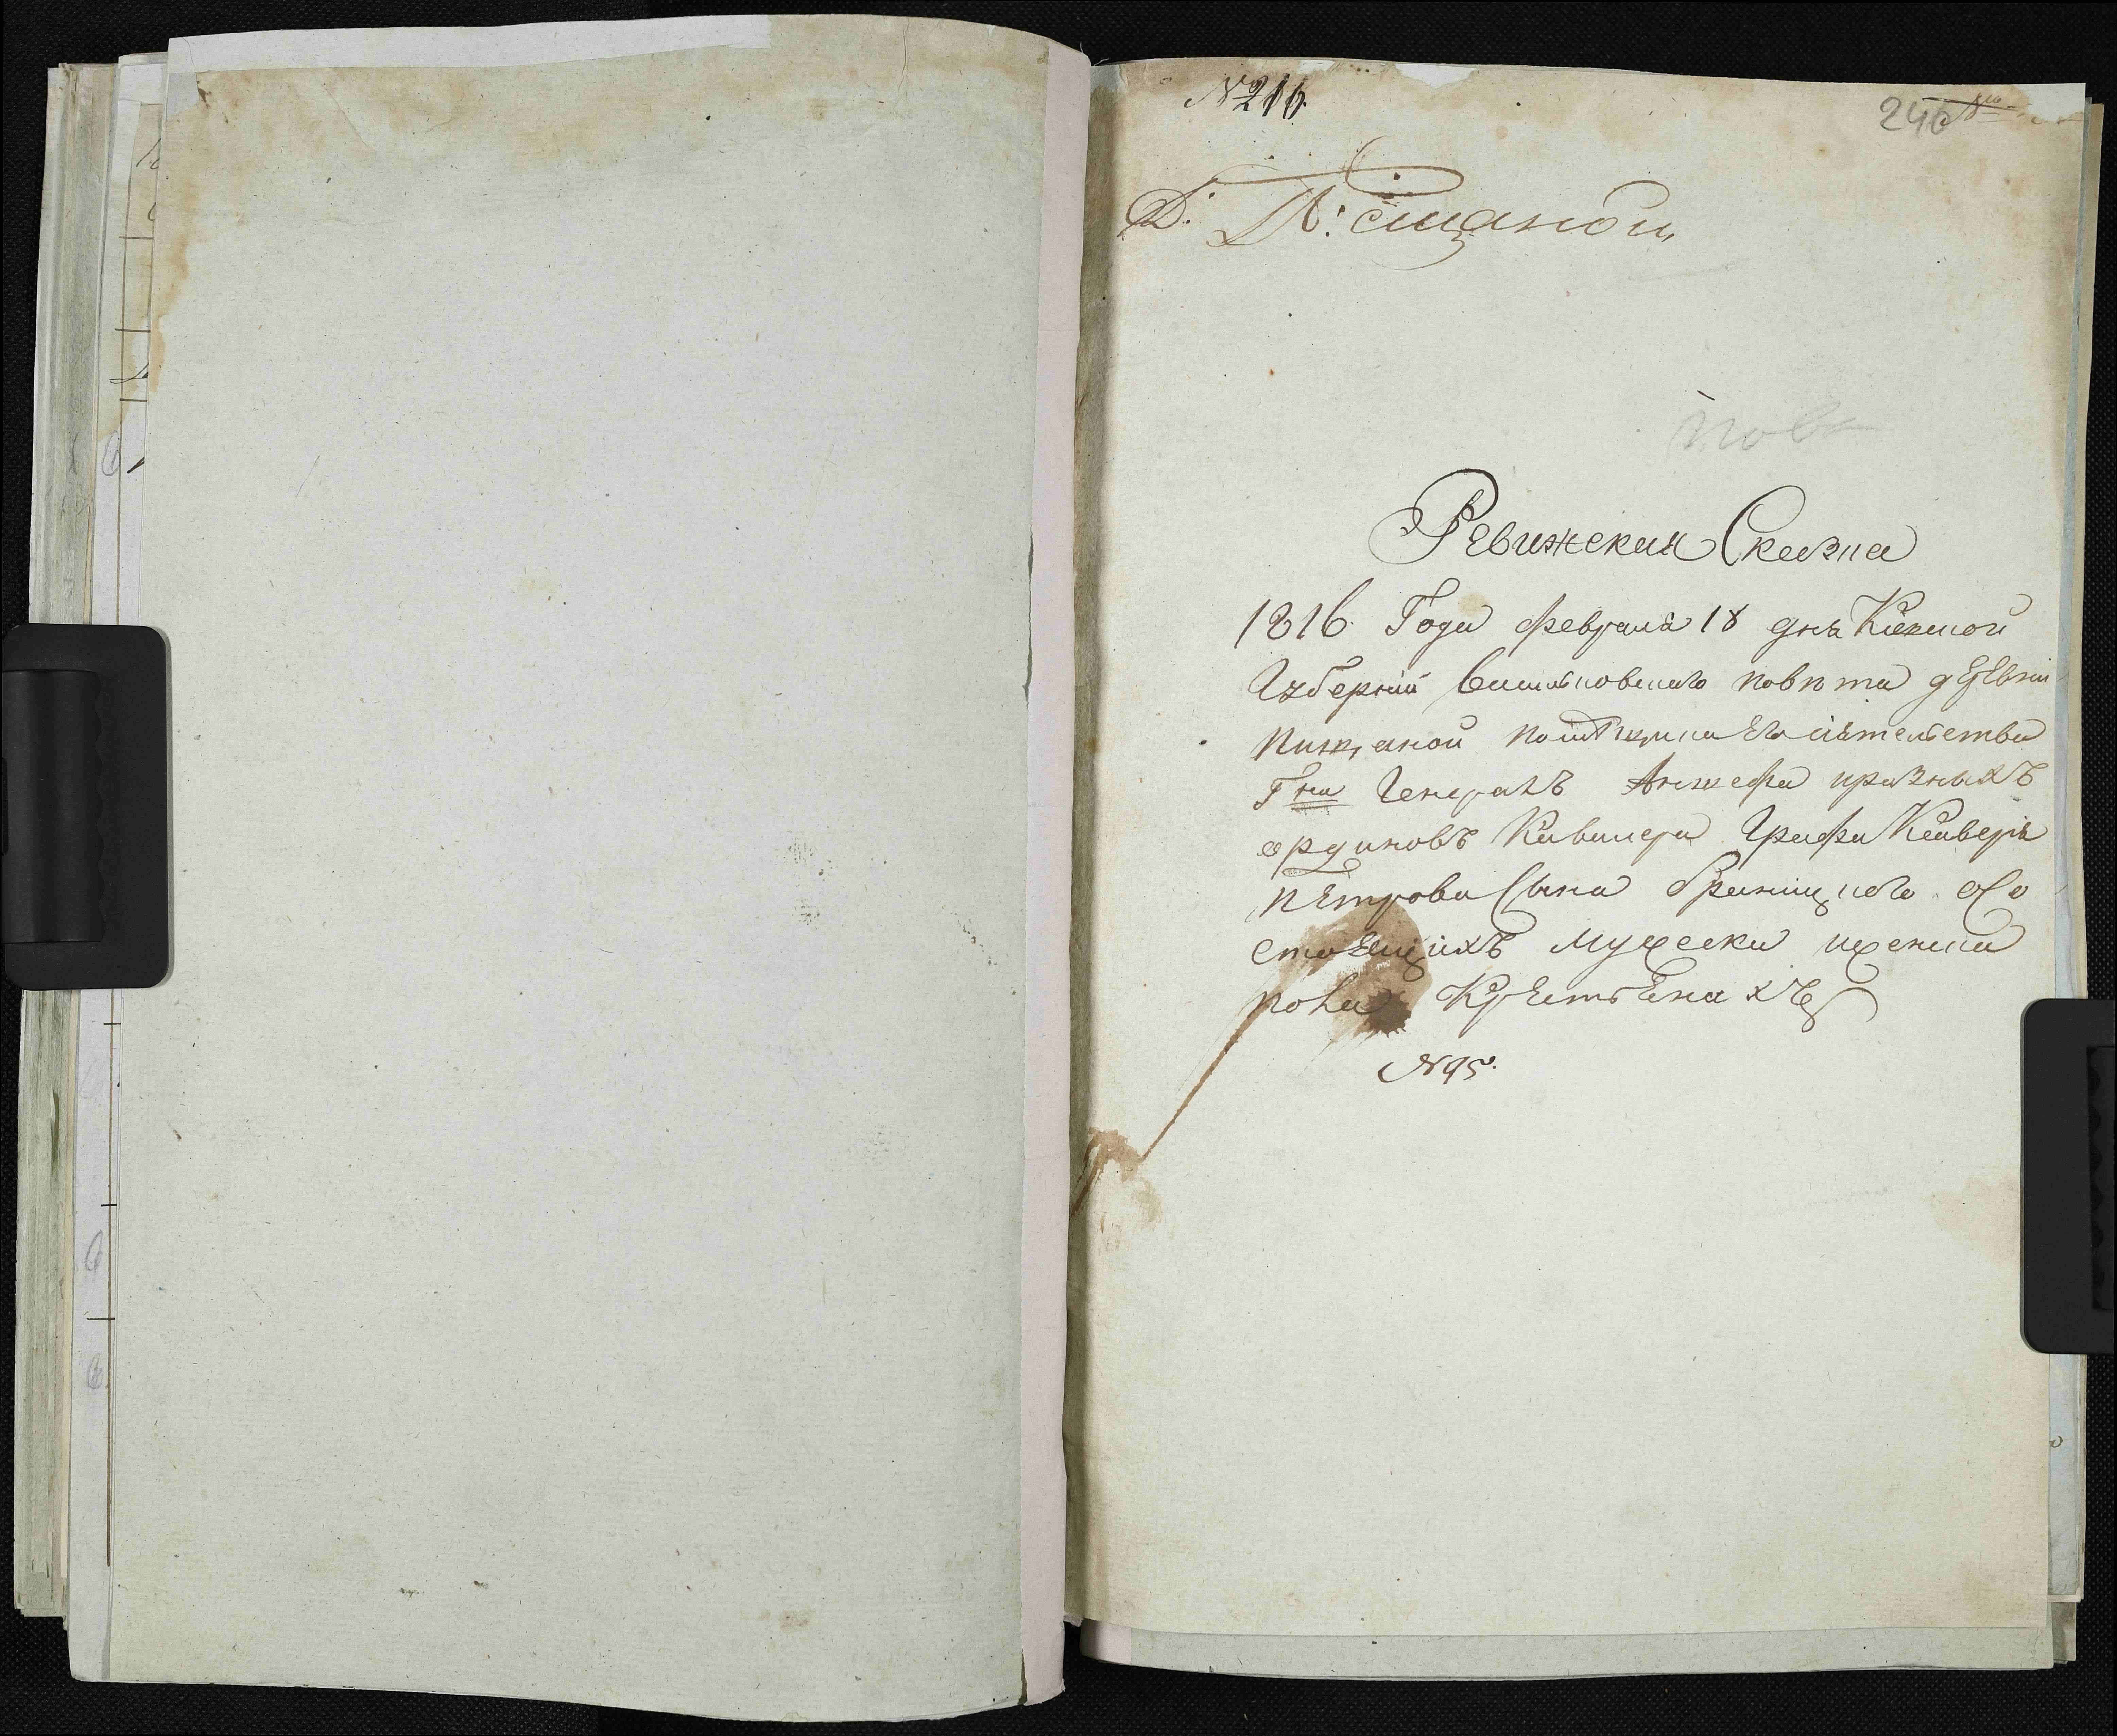 №216.
246
Д: Песщаной
Ревижская Сказка
1816 Года февраля 18 дня Киевской
Губернии Василковскаго повета деревни
Пищаной помещика его сиятельства
Г:на Генералъ Аншефа иразныхъ
ординовъ Кавалера Графа Ксаверia
Петрова Сына Браницкого осо
стоящихъ мужеска иженска
пола Крестьенахъ
№95.